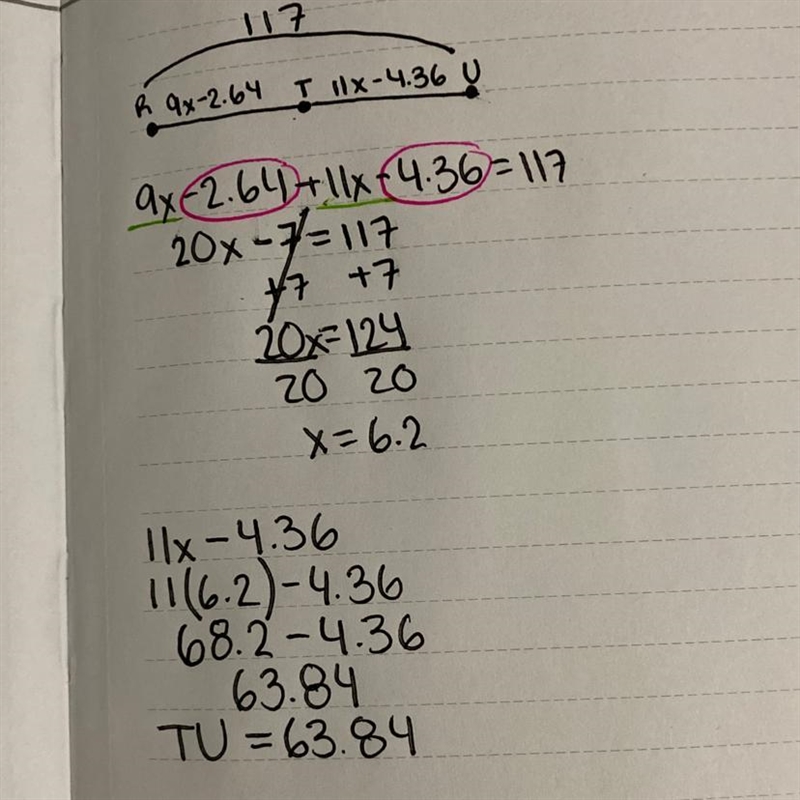 117
R 9x-2.64 T 11x-4.36 U
9x-2.64+11x-4.36=117
20x-7=117
+7 +7
20x=124
20 20
x=6.2
11x-4.36
11(6.2)-4.36
68.2-4.36
63.84
TU=63.84